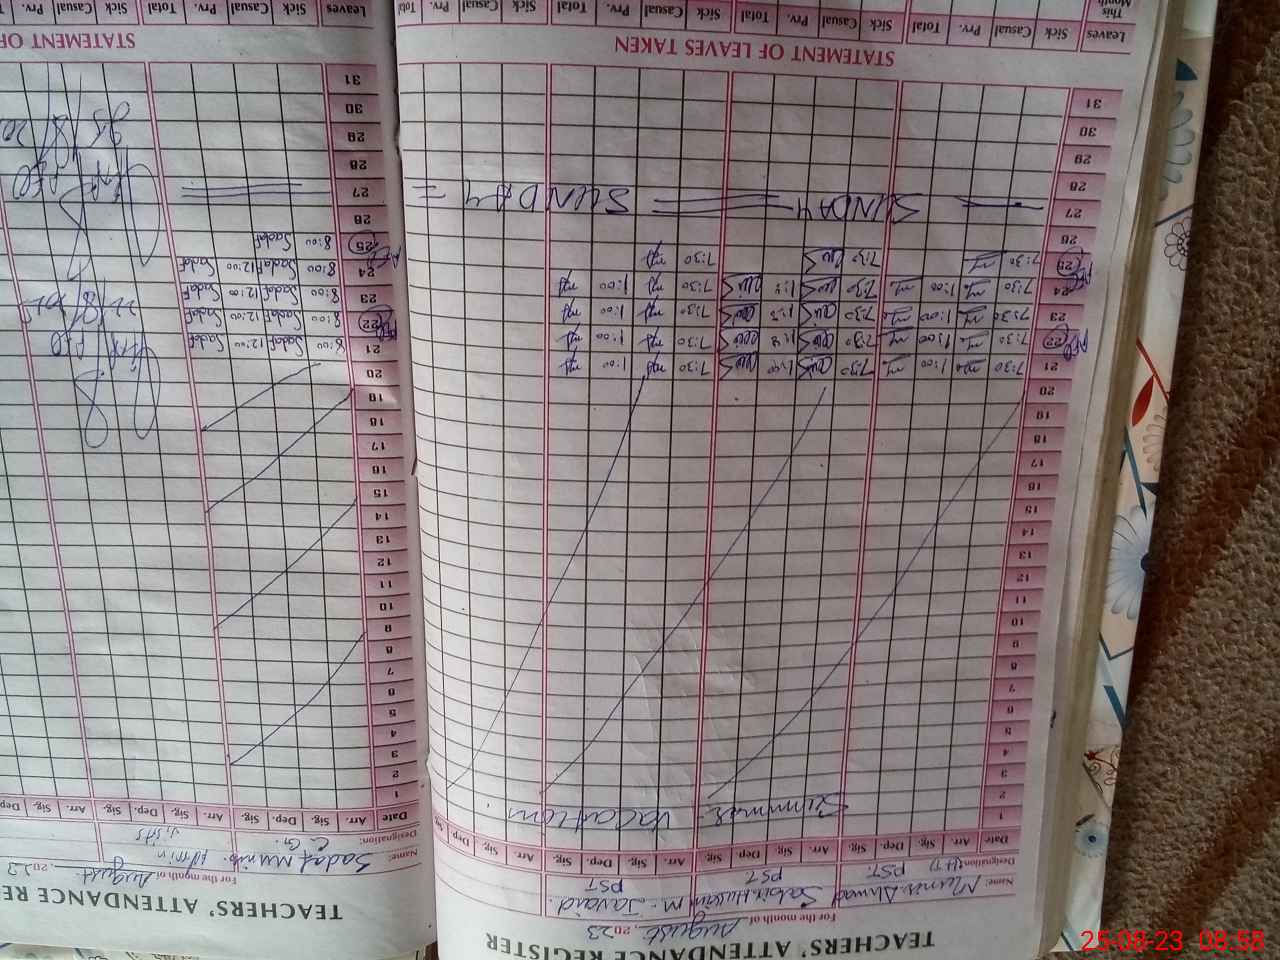 TEACHERS' ATTENDANCE REGISTER
For the month of August, 2023
Name: Munir Ahmad Sabir Hussain M. Javaid.
Designation: (HT) PST. PST PST
Date Arr. Sig. Dep. Sig. Arr. Sig. Dep. Sig. Arr. Sig. Dep. Sig. Arr. Sig. Dep. Sig.
1 Summer Vacations
2
3
4
5
6
7
8
9
10
11
12
13
14
15
16
17
18
19
20
21 7:30 1:00 7:30 1:00 7:30 1:00
22 7:30 1:00 7:30 7:30 1:00
23 7:30 1:00 7:30 7:30 1:00
24 7:30 1:00 7:30 7:30 1:00
25 7:30 7:30 7:30
26
27 SUNDAY SUNDAY
28
29
30
31
STATEMENT OF LEAVES TAKEN
Leaves Sick Casual Prv. Total Sick Casual Prv. Total Sick Casual Prv. Total Sick Casual Prv. Total
This Month
TEACHERS' ATTENDANCE RE
For the month of August, 2023
Name: Sadaf Munir
Designation: C.G.
Date Arr. Sig. Dep. Sig. Arr. Sig. Dep. Sig. Arr. Sig. Dep
1
2
3
4
5
6
7
8
9
10
11
12
13
14
15
16
17
18
19
20
21 8:00 Sadaf 12:00 Sadaf
22 8:00 Sadaf 12:00 Sadaf
23 8:00 Sadaf 12:00 Sadaf
24 8:00 Sadaf 12:00 Sadaf
25 8:00 Sadaf
26
27
28
29
30
31
STATEMENT OF
Leaves Sick Casual Prv. Total Sick Casual Prv. Total
25-08-23 08:58